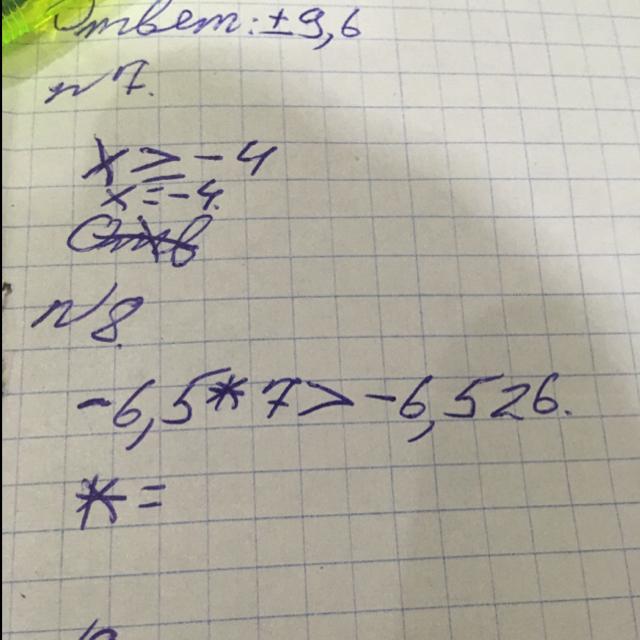 Ответ: ±9,6
№7.
x ≥ -4
x = -4.
№8.
-6,5*7 > -6,526.
* =